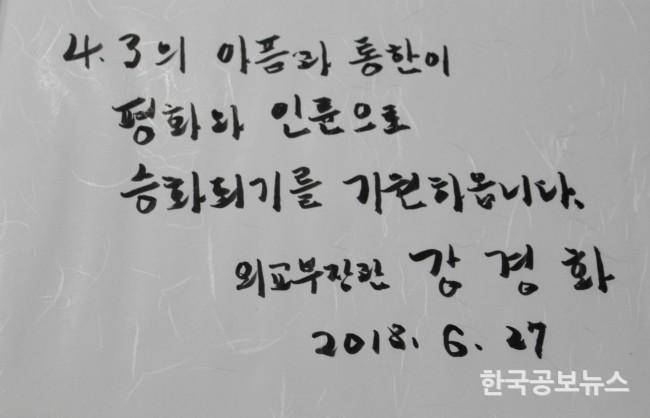 4.3의 아픔과 통한이
평화와 인륜으로
승화되기를 기원하옵니다.
외교부장관 강경화
2018. 6. 27
한국공보뉴스